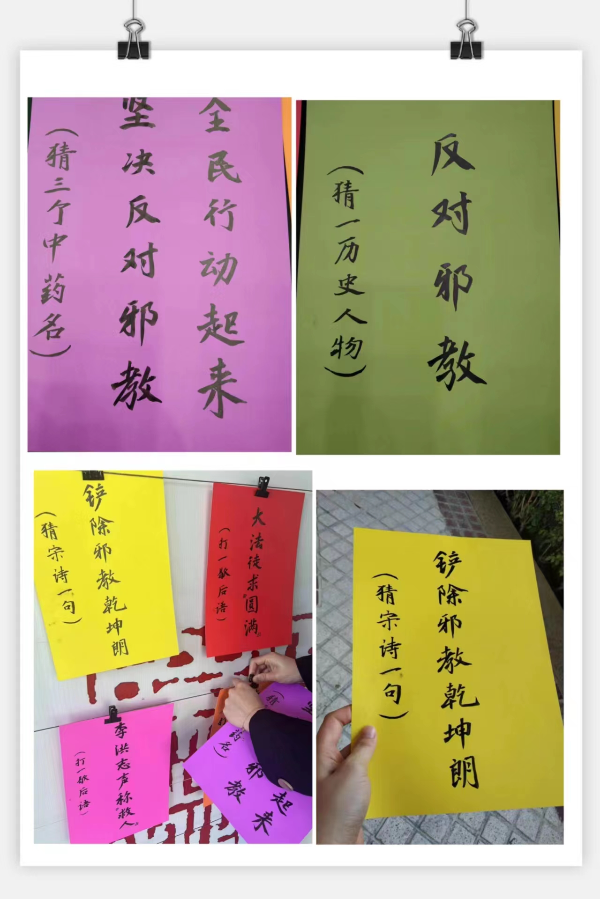 全民行动起来
坚决反对邪教
（猜三个中药名）
反对邪教
（猜一历史人物）
铲除邪教乾坤朗
（猜宗诗一句）
大法徒求“圆满”
（打一歇后语）
李洪志声称“救人”
（打一歇后语）
起来
邪教
药名）
铲除邪教乾坤朗
（猜宗诗一句）